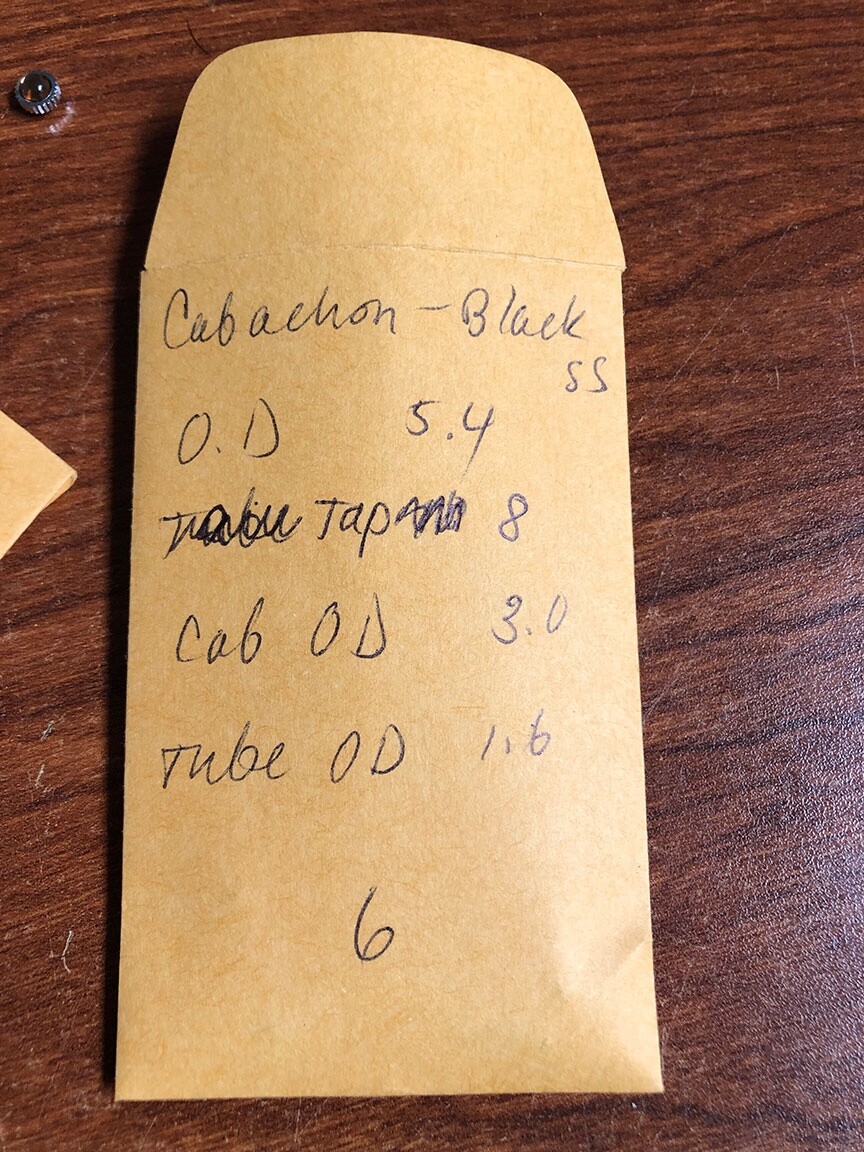 Cabachon - Black
SS
O.D 5.4
Tap 8
Cab OD 3.0
Tube OD 1.6
6